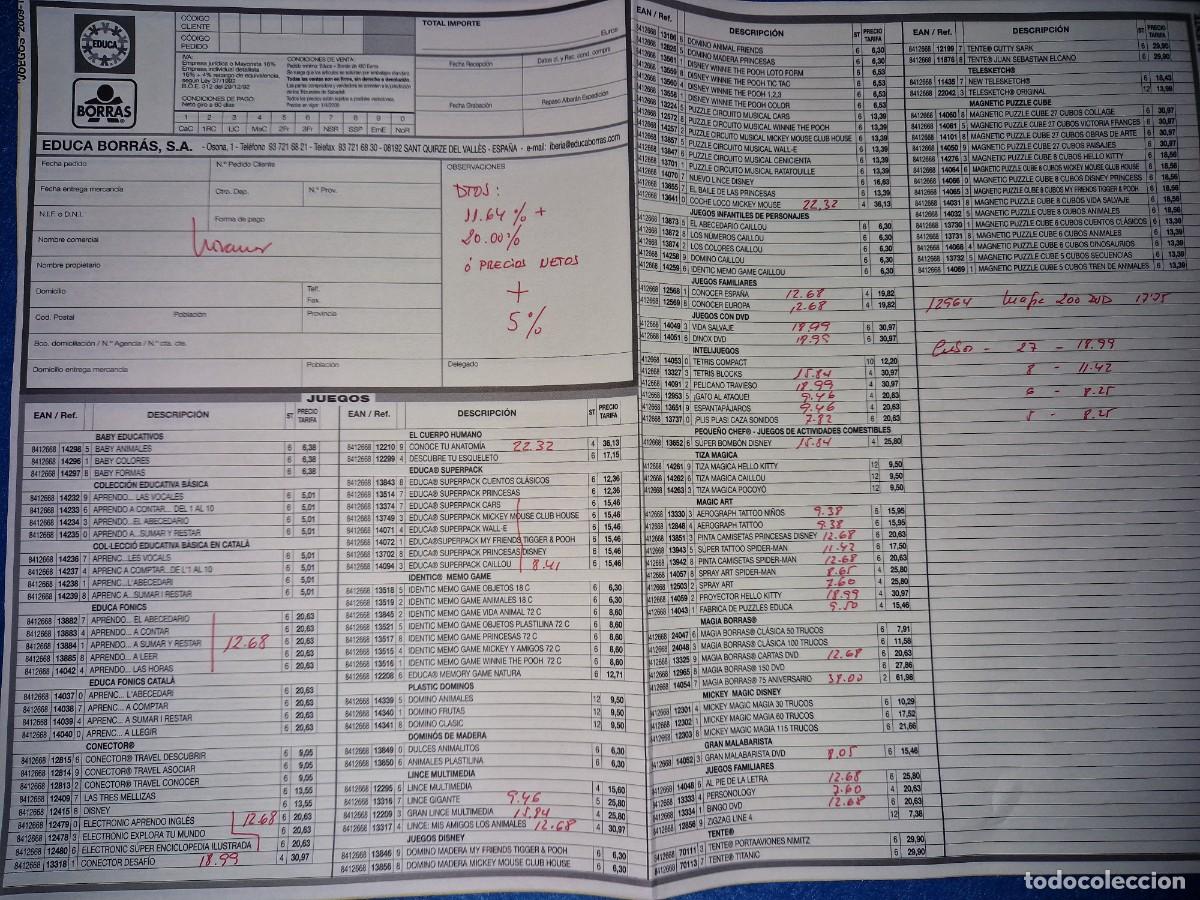 JUEGOS 2009-1
EDUCA
BORRAS
CÓDIGO CLIENTE
CÓDIGO PEDIDO
TOTAL IMPORTE
Euros
IVA:
Empresa jurídica o Mayorista 16%
Empresa individual detallista
16% + 4% recargo de equivalencia,
según Ley 37/1992
B.O.E. 312 del 29/12/92
CONDICIONES DE PAGO:
Neto giro a 60 días
CONDICIONES DE VENTA:
Fecha Recepción
Fecha Grabación
Repaso Albarán Expedición
1 2 3 4 5 6 7 8 9 0
CaC 1RC LiC MxC 2Fr 3Fr NSR SSP EmE NoR
EDUCA BORRÁS, S.A. - Osona, 1 - Teléfono 93 721 68 21 - Telefax 93 721 68 30 - 08192 SANT QUIRZE DEL VALLÈS - ESPAÑA - e-mail: iberia@educaborras.com
Fecha pedido
N.º Pedido Cliente
Fecha entrega mercancía
Ctro. Dep.
N.º Prov.
N.I.F. o D.N.I.
Forma de pago
Nombre comercial
Nombre propietario
Domicilio
Telf.
Fax.
Cod. Postal
Población
Provincia
Bco. domiciliación / N.º Agencia / N.º cta. cte.
Domicilio entrega mercancía
Población
OBSERVACIONES
DTOS:
11.64 % +
20.00%
ó PRECIOS NETOS
+
5%
Delegado
JUEGOS
EAN / Ref. DESCRIPCIÓN ST PRECIO TARIFA
BABY EDUCATIVOS
8412668 14298 5 BABY ANIMALES 6 6,38
8412668 14296 1 BABY COLORES 6 6,38
8412668 14297 8 BABY FORMAS 6 6,38
COLECCIÓN EDUCATIVA BÁSICA
8412668 14232 9 APRENDO... LAS VOCALES 6 5,01
8412668 14233 6 APRENDO A CONTAR... DEL 1 AL 10 6 5,01
8412668 14234 3 APRENDO..EL ABECEDARIO 6 5,01
8412668 14235 0 APRENDO A..SUMAR Y RESTAR 6 5,01
COL·LECCIÓ EDUCATIVA BÀSICA EN CATALÀ
8412668 14236 7 APRENC...LES VOCALS 6 5,01
8412668 14237 4 APRENC A COMPTAR...DE L'1 AL 10 6 5,01
8412668 14238 1 APRENC...L'ABECEDARI 6 5,01
8412668 14239 8 APRENC A..SUMAR I RESTAR 6 5,01
EDUCA FONICS
8412668 13882 7 APRENDO... EL ABECEDARIO 6 20,63
8412668 13883 4 APRENDO... A CONTAR 6 20,63
8412668 13884 1 APRENDO... A SUMAR Y RESTAR 12.68 6 20,63
8412668 13885 8 APRENDO... A LEER 6 20,63
8412668 14042 4 APRENDO... LAS HORAS 6 20,63
EDUCA FONICS CATALÀ
8412668 14037 0 APRENC... L'ABECEDARI 6 20,63
8412668 14038 7 APRENC... A COMPTAR 6 20,63
8412668 14039 4 APRENC... A SUMAR I RESTAR 6 20,63
8412668 14040 0 APRENC... A LLEGIR 6 20,63
CONECTOR®
8412668 12815 6 CONECTOR® TRAVEL DESCUBRIR 6 9,05
8412668 12814 9 CONECTOR® TRAVEL ASOCIAR 6 9,05
8412668 12813 2 CONECTOR® TRAVEL CONOCER 6 9,05
8412668 12409 7 LAS TRES MELLIZAS 6 13,55
8412668 12415 8 DISNEY 6 13,55
8412668 12479 0 ELECTRONIC APRENDO INGLÉS 12.68 6 20,63
8412668 12478 3 ELECTRONIC EXPLORA TU MUNDO 6 20,63
8412668 12480 6 ELECTRONIC SÚPER ENCICLOPEDIA ILUSTRADA 6 20,63
8412668 13318 1 CONECTOR DESAFÍO 18.99 4 30,97
EAN / Ref. DESCRIPCIÓN ST PRECIO TARIFA
EL CUERPO HUMANO
8412668 12210 9 CONOCE TU ANATOMÍA 22.32 4 36,13
8412668 12299 4 DESCUBRE TU ESQUELETO 6 17,15
EDUCA® SUPERPACK
8412668 13843 8 EDUCA® SUPERPACK CUENTOS CLÁSICOS 6 12,36
8412668 13514 7 EDUCA® SUPERPACK PRINCESAS 6 12,36
8412668 13374 7 EDUCA® SUPERPACK CARS 6 15,46
8412668 13749 3 EDUCA® SUPERPACK MICKEY MOUSE CLUB HOUSE 6 15,46
8412668 14071 4 EDUCA® SUPERPACK WALL-E 6 15,46
8412668 14072 1 EDUCA®SUPERPACK MY FRIENDS TIGGER & POOH 6 15,46
8412668 13702 8 EDUCA® SUPERPACK PRINCESAS DISNEY 6 15,46
8412668 14094 3 EDUCA® SUPERPACK CAILLOU 8.41 6 15,46
IDENTIC® MEMO GAME
8412668 13518 5 IDENTIC MEMO GAME OBJETOS 18 C 6 6,30
8412668 13519 2 IDENTIC MEMO GAME ANIMALES 18 C 6 6,30
8412668 13845 2 IDENTIC MEMO GAME VIDA ANIMAL 72 C 6 8,60
8412668 13521 5 IDENTIC MEMO GAME OBJETOS PLASTILINA 72 C 6 8,60
8412668 13517 8 IDENTIC MEMO GAME PRINCESAS 72 C 6 8,60
8412668 13515 4 IDENTIC MEMO GAME MICKEY Y AMIGOS 72 C 6 8,60
8412668 13516 1 IDENTIC MEMO GAME WINNIE THE POOH 72 C 6 8,60
8412668 12208 6 EDUCA® MEMORY GAME NATURA 6 12,71
PLASTIC DOMINOS
8412668 14339 5 DOMINO ANIMALES 12 9,50
8412668 14340 1 DOMINO FRUTAS 12 9,50
8412668 14341 8 DOMINO CLASIC 12 9,50
DOMINÓS DE MADERA
8412668 13849 0 DULCES ANIMALITOS 6 6,30
8412668 13850 6 ANIMALES PLASTILINA 6 6,30
LINCE MULTIMEDIA
8412668 12295 6 LINCE MULTIMEDIA 4 15,60
8412668 13316 7 LINCE GIGANTE 9.46 5 25,80
8412668 12209 3 GRAN LINCE MULTIMEDIA 15.84 4 25,80
8412668 13317 4 LINCE: MIS AMIGOS LOS ANIMALES 12.68 4 30,97
JUEGOS DISNEY
8412668 13846 9 DOMINO MADERA MY FRIENDS TIGGER & POOH 6 6,30
8412668 13856 8 DOMINO MADERA MICKEY MOUSE CLUB HOUSE 6 6,30
EAN / Ref. DESCRIPCIÓN ST PRECIO TARIFA
8412668 13186 6 DOMINO ANIMAL FRIENDS 6 6,30
8412668 12825 5 DOMINO MADERA PRINCESAS 6 6,30
8412668 13561 1 DISNEY WINNIE THE POOH LOTO FORM 6 6,53
8412668 13559 8 DISNEY WINNIE THE POOH TIC TAC 6 6,53
8412668 13555 0 DISNEY WINNIE THE POOH 1,2,3 6 6,53
8412668 13224 5 DISNEY WINNIE THE POOH COLOR 6 6,53
8412668 12572 8 PUZZLE CIRCUITO MUSICAL CARS 6 13,39
8412668 12257 4 PUZZLE CIRCUITO MUSICAL WINNIE THE POOH 6 13,39
PUZZLE CIRCUITO MUSICAL MICKEY MOUSE CLUB HOUSE 6 13,39
PUZZLE CIRCUITO MUSICAL WALL-E 6 13,39
8412668 13847 6 PUZZLE CIRCUITO MUSICAL CENICIENTA 6 13,39
PUZZLE CIRCUITO MUSICAL RATATOUILLE 6 13,39
8412668 14070 7 NUEVO LINCE DISNEY 6 16,63
8412668 13655 7 EL BAILE DE LAS PRINCESAS 6 13,39
8412668 13641 0 COCHE LOCO MICKEY MOUSE 22,32 4 36,13
JUEGOS INFANTILES DE PERSONAJES
8412668 13873 5 EL ABECEDARIO CAILLOU 6 6,30
8412668 13872 8 LOS NÚMEROS CAILLOU 6 6,30
8412668 13874 2 LOS COLORES CAILLOU 6 6,30
8412668 14258 9 DOMINO CAILLOU 6 6,30
8412668 14259 6 IDENTIC MEMO GAME CAILLOU 6 6,30
JUEGOS FAMILIARES
8412668 12568 1 CONOCER ESPAÑA 12.68 4 19,82
8412668 12569 8 CONOCER EUROPA 12.68 4 19,82
JUEGOS CON DVD
8412668 14049 3 VIDA SALVAJE 18.99 6 30,97
8412668 14051 6 DINOX DVD 18.99 6 30,97
INTELIJUEGOS
8412668 14053 0 TETRIS COMPACT 10 12,20
8412668 13327 3 TETRIS BLOCKS 15.84 4 30,97
8412668 14091 2 PELICANO TRAVIESO 18.99 4 30,97
8412668 12953 5 ¡GATO AL ATAQUE! 9.46 4 20,63
8412668 13651 9 ESPANTAPÁJAROS 9.46 4 20,63
8412668 13737 0 ¡PLIS PLAS! CAZA SONIDOS 7.82 4 20,63
PEQUEÑO CHEF® - JUEGOS DE ACTIVIDADES COMESTIBLES
8412668 13652 6 SÚPER BOMBÓN DISNEY 15.84 4 25,80
TIZA MAGICA
8412668 14261 9 TIZA MAGICA HELLO KITTY 12 9,50
8412668 14262 6 TIZA MAGICA CAILLOU 12 9,50
8412668 14263 3 TIZA MAGICA POCOYÓ 12 9,50
MAGIC ART
8412668 13330 3 AEROGRAPH TATTOO NIÑOS 9.38 4 15,95
8412668 12848 4 AEROGRAPH TATTOO 9.38 4 15,95
8412668 13851 3 PINTA CAMISETAS PRINCESAS DISNEY 12.68 6 20,63
8412668 13943 5 SÚPER TATTOO SPIDER-MAN 11.42 6 17,50
8412668 13942 8 PINTA CAMISETAS SPIDER-MAN 12.68 6 20,63
8412668 14057 8 SPRAY ART SPIDER-MAN 8.65 4 25,80
8412668 12503 2 SPRAY ART 7.60 4 25,80
8412668 14059 2 PROYECTOR HELLO KITTY 18.99 4 30,97
8412668 14043 1 FABRICA DE PUZZLES EDUCA 9.50 4 15,46
MAGIA BORRAS®
8412668 24047 6 MAGIA BORRAS® CLÁSICA 50 TRUCOS 6 7,91
8412668 24048 3 MAGIA BORRAS® CLÁSICA 100 TRUCOS 6 11,58
8412668 13325 9 MAGIA BORRAS® CARTAS DVD 12.68 6 20,63
8412668 12965 8 MAGIA BORRAS® 150 DVD 6 27,86
8412668 14054 7 MAGIA BORRAS® 75 ANIVERSARIO 38.00 2 61,98
MICKEY MAGIC DISNEY
8412668 12301 4 MICKEY MAGIC MAGIA 30 TRUCOS 6 10,29
8412668 12302 1 MICKEY MAGIC MAGIA 60 TRUCOS 6 17,52
8412668 12303 8 MICKEY MAGIC MAGIA 115 TRUCOS 6 21,66
GRAN MALABARISTA
8412668 14052 3 GRAN MALABARISTA DVD 8.05 6 15,46
JUEGOS FAMILIARES
8412668 14048 6 AL PIE DE LA LETRA 12.68 6 25,80
8412668 13333 4 PERSONOLOGY 7.60 4 20,63
8412668 13334 1 BINGO DVD 12.68 6 20,63
8412668 12856 9 ZIGZAG LINE 4 12 7,38
TENTE®
8412668 70111 3 TENTE® PORTAAVIONES NIMITZ 6 29,90
8412668 70113 7 TENTE® TITANIC 6 29,90
EAN / Ref. DESCRIPCIÓN ST PRECIO TARIFA
8412668 12199 7 TENTE® CUTTY SARK 6 29,90
8412668 11876 8 TENTE® JUAN SEBASTIAN ELCANO 6 29,90
TELESKETCH®
8412668 11435 7 NEW TELESKETCH® 6 18,43
8412668 22042 3 TELESKETCH® ORIGINAL 12 13,99
MAGNETIC PUZZLE CUBE
8412668 14060 8 MAGNETIC PUZZLE CUBE 27 CUBOS COLLAGE 6 30,97
8412668 14081 5 MAGNETIC PUZZLE CUBE 27 CUBOS VICTORIA FRANCES 6 30,97
8412668 14101 8 MAGNETIC PUZZLE CUBE 27 CUBOS OBRAS DE ARTE 6 30,97
8412668 14050 9 MAGNETIC PUZZLE CUBE 27 CUBOS PAISAJES 6 30,97
8412668 14276 3 MAGNETIC PUZZLE CUBE 8 CUBOS HELLO KITTY 6 18,56
8412668 14064 6 MAGNETIC PUZZLE CUBE 8 CUBOS MICKEY MOUSE CLUB HOUSE 6 18,56
8412668 14066 0 MAGNETIC PUZZLE CUBE 8 CUBOS DISNEY PRINCESS 6 18,56
8412668 14065 3 MAGNETIC PUZZLE CUBE 8 CUBOS MY FRIENDS TIGGER & POOH 6 18,56
8412668 14031 8 MAGNETIC PUZZLE CUBE 8 CUBOS VIDA SALVAJE 6 18,56
8412668 14032 5 MAGNETIC PUZZLE CUBE 8 CUBOS ANIMALES 6 18,56
8412668 13730 1 MAGNETIC PUZZLE CUBE 6 CUBOS CUENTOS CLÁSICOS 6 13,39
8412668 13731 8 MAGNETIC PUZZLE CUBE 6 CUBOS ANIMALES 6 13,39
8412668 14068 4 MAGNETIC PUZZLE CUBE 6 CUBOS DINOSAURIOS 6 13,39
8412668 13732 5 MAGNETIC PUZZLE CUBE 5 CUBOS SECUENCIAS 6 13,39
8412668 14069 1 MAGNETIC PUZZLE CUBE 5 CUBOS TREN DE ANIMALES 6 13,39
12964 200 DVD 17'75
27 - 18.99
8 - 11.42
6 - 8.25
5 - 8.25
todocoleccion